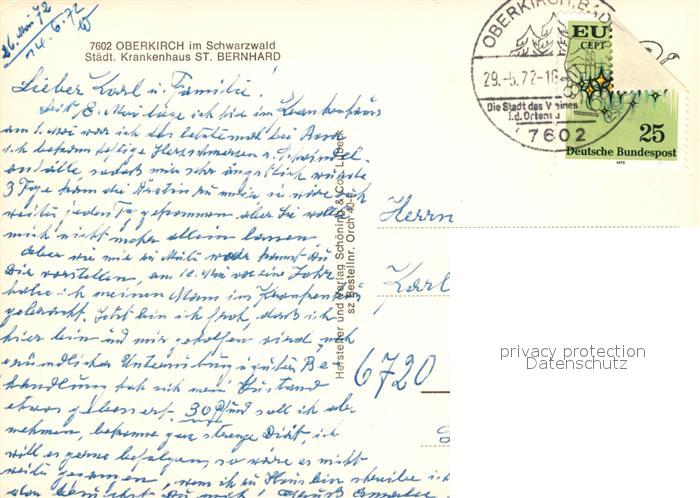 26. Mai 72
14.6.72
7602 OBERKIRCH im Schwarzwald
Städt. Krankenhaus ST. BERNHARD
Lieber Karl u. Familie!
Seit 8. Mai liege ich hier im Krankenhaus
am 1. Mai war ich das letztemal bei
ich bekam heftige Herzschmerzen u. Schwindel-
anfälle, sodaß mir sehr ängstlich wurde
3 Tage kam die Ärztin zu mir u. wäre
weiter jeden Tag gekommen aber Sie wollte
mich nicht mehr allein lassen
Aber wie mir zu Mute war kannst Du
Dir vorstellen, am 10. Mai vor ein Jahr
habe ich meinen Mann im Krankenhaus
gebracht. Jetzt bin ich froh, daß ich
hier bin und mir geholfen wird, nach
gründlicher Untersuchung u. guter Be-
handlung hat sich mein Zustand
etwas gebessert. 30 Pfund soll ich ab-
nehmen, bekomme ganz strenge Diät, ich
will es gerne befolgen, so wäre es nicht
weiter gegangen, wenn ich zu Haus bin schreibe ich
Hersteller und Verlag Schöning & Co., Lübeck
sz Bestellnr. Orch 40
OBERKIRCH, BADEN
29.-5.72-18
Die Stadt des Weines
i.d. Ortenau
7602
EU
CEPT
25
Deutsche Bundespost
1972
Herrn
Karl
6720
privacy protection
Datenschutz